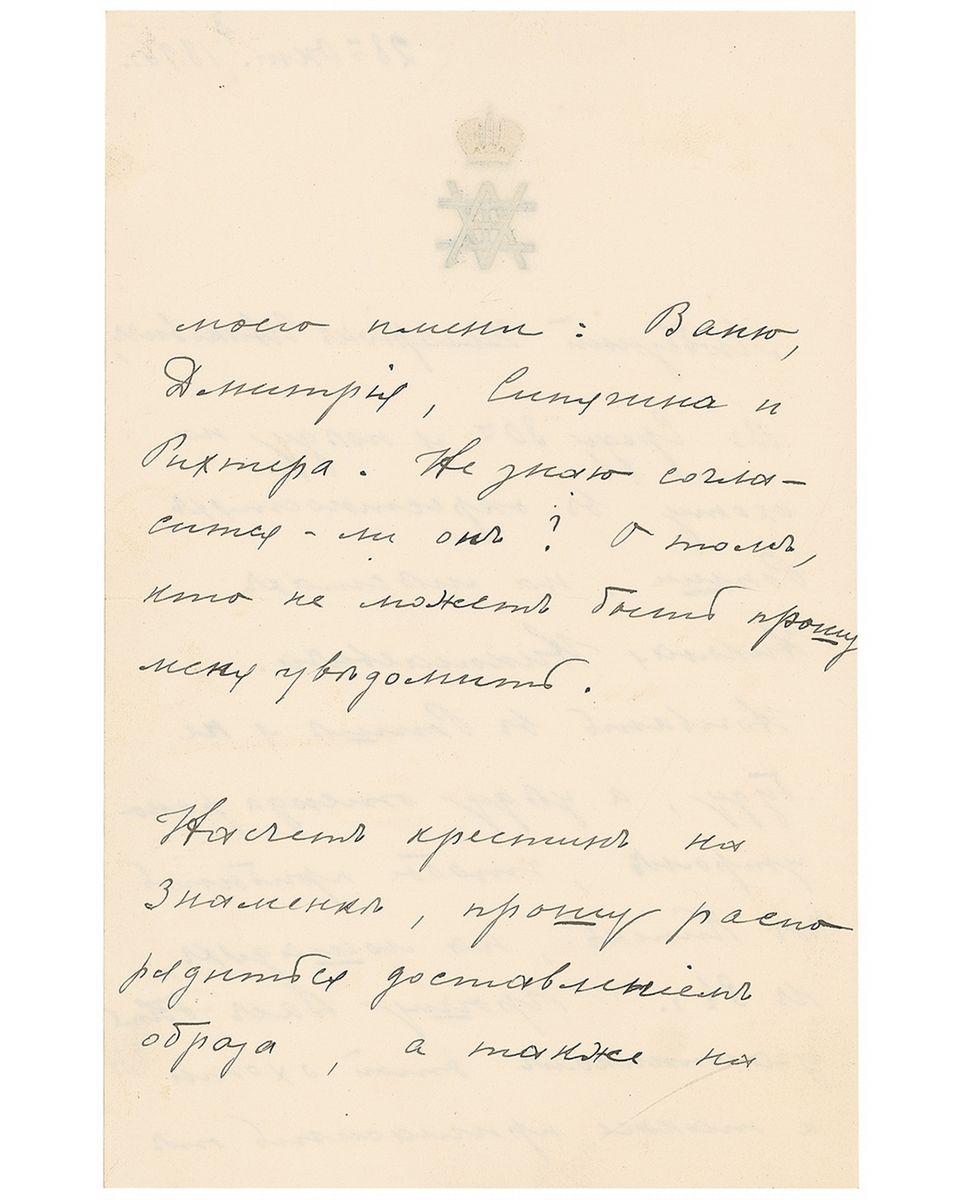 моего имени : Ваню,
Дмитрія, Сипягина и
Рихтера. Не знаю согла-
сится-ли онъ? О томъ,
кто не можетъ быть прошу
меня увѣдомить.
Насчетъ крестинъ на
Знаменкѣ, прошу распо
рядиться доставленіемъ
образа, а также на